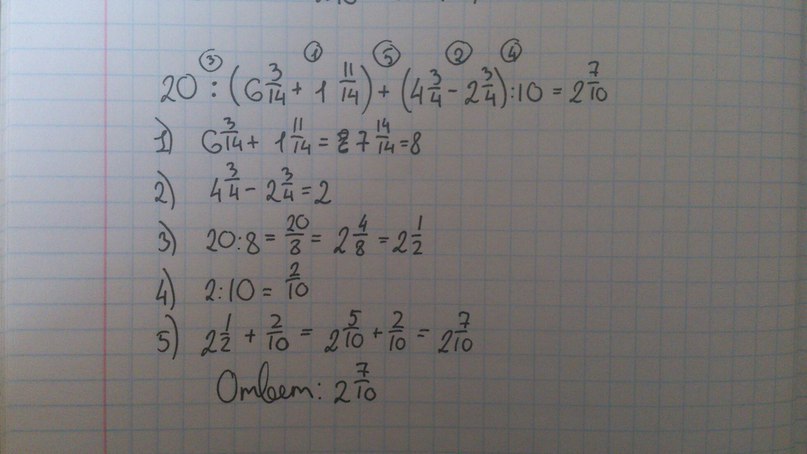 ③ ① ⑤ ② ④
20 : (6 3/14 + 1 11/14) + (4 3/4 - 2 3/4) : 10 = 2 7/10
1) 6 3/14 + 1 11/14 = 7 14/14 = 8
2) 4 3/4 - 2 3/4 = 2
3) 20 : 8 = 20/8 = 2 4/8 = 2 1/2
4) 2 : 10 = 2/10
5) 2 1/2 + 2/10 = 2 5/10 + 2/10 = 2 7/10
Ответ: 2 7/10